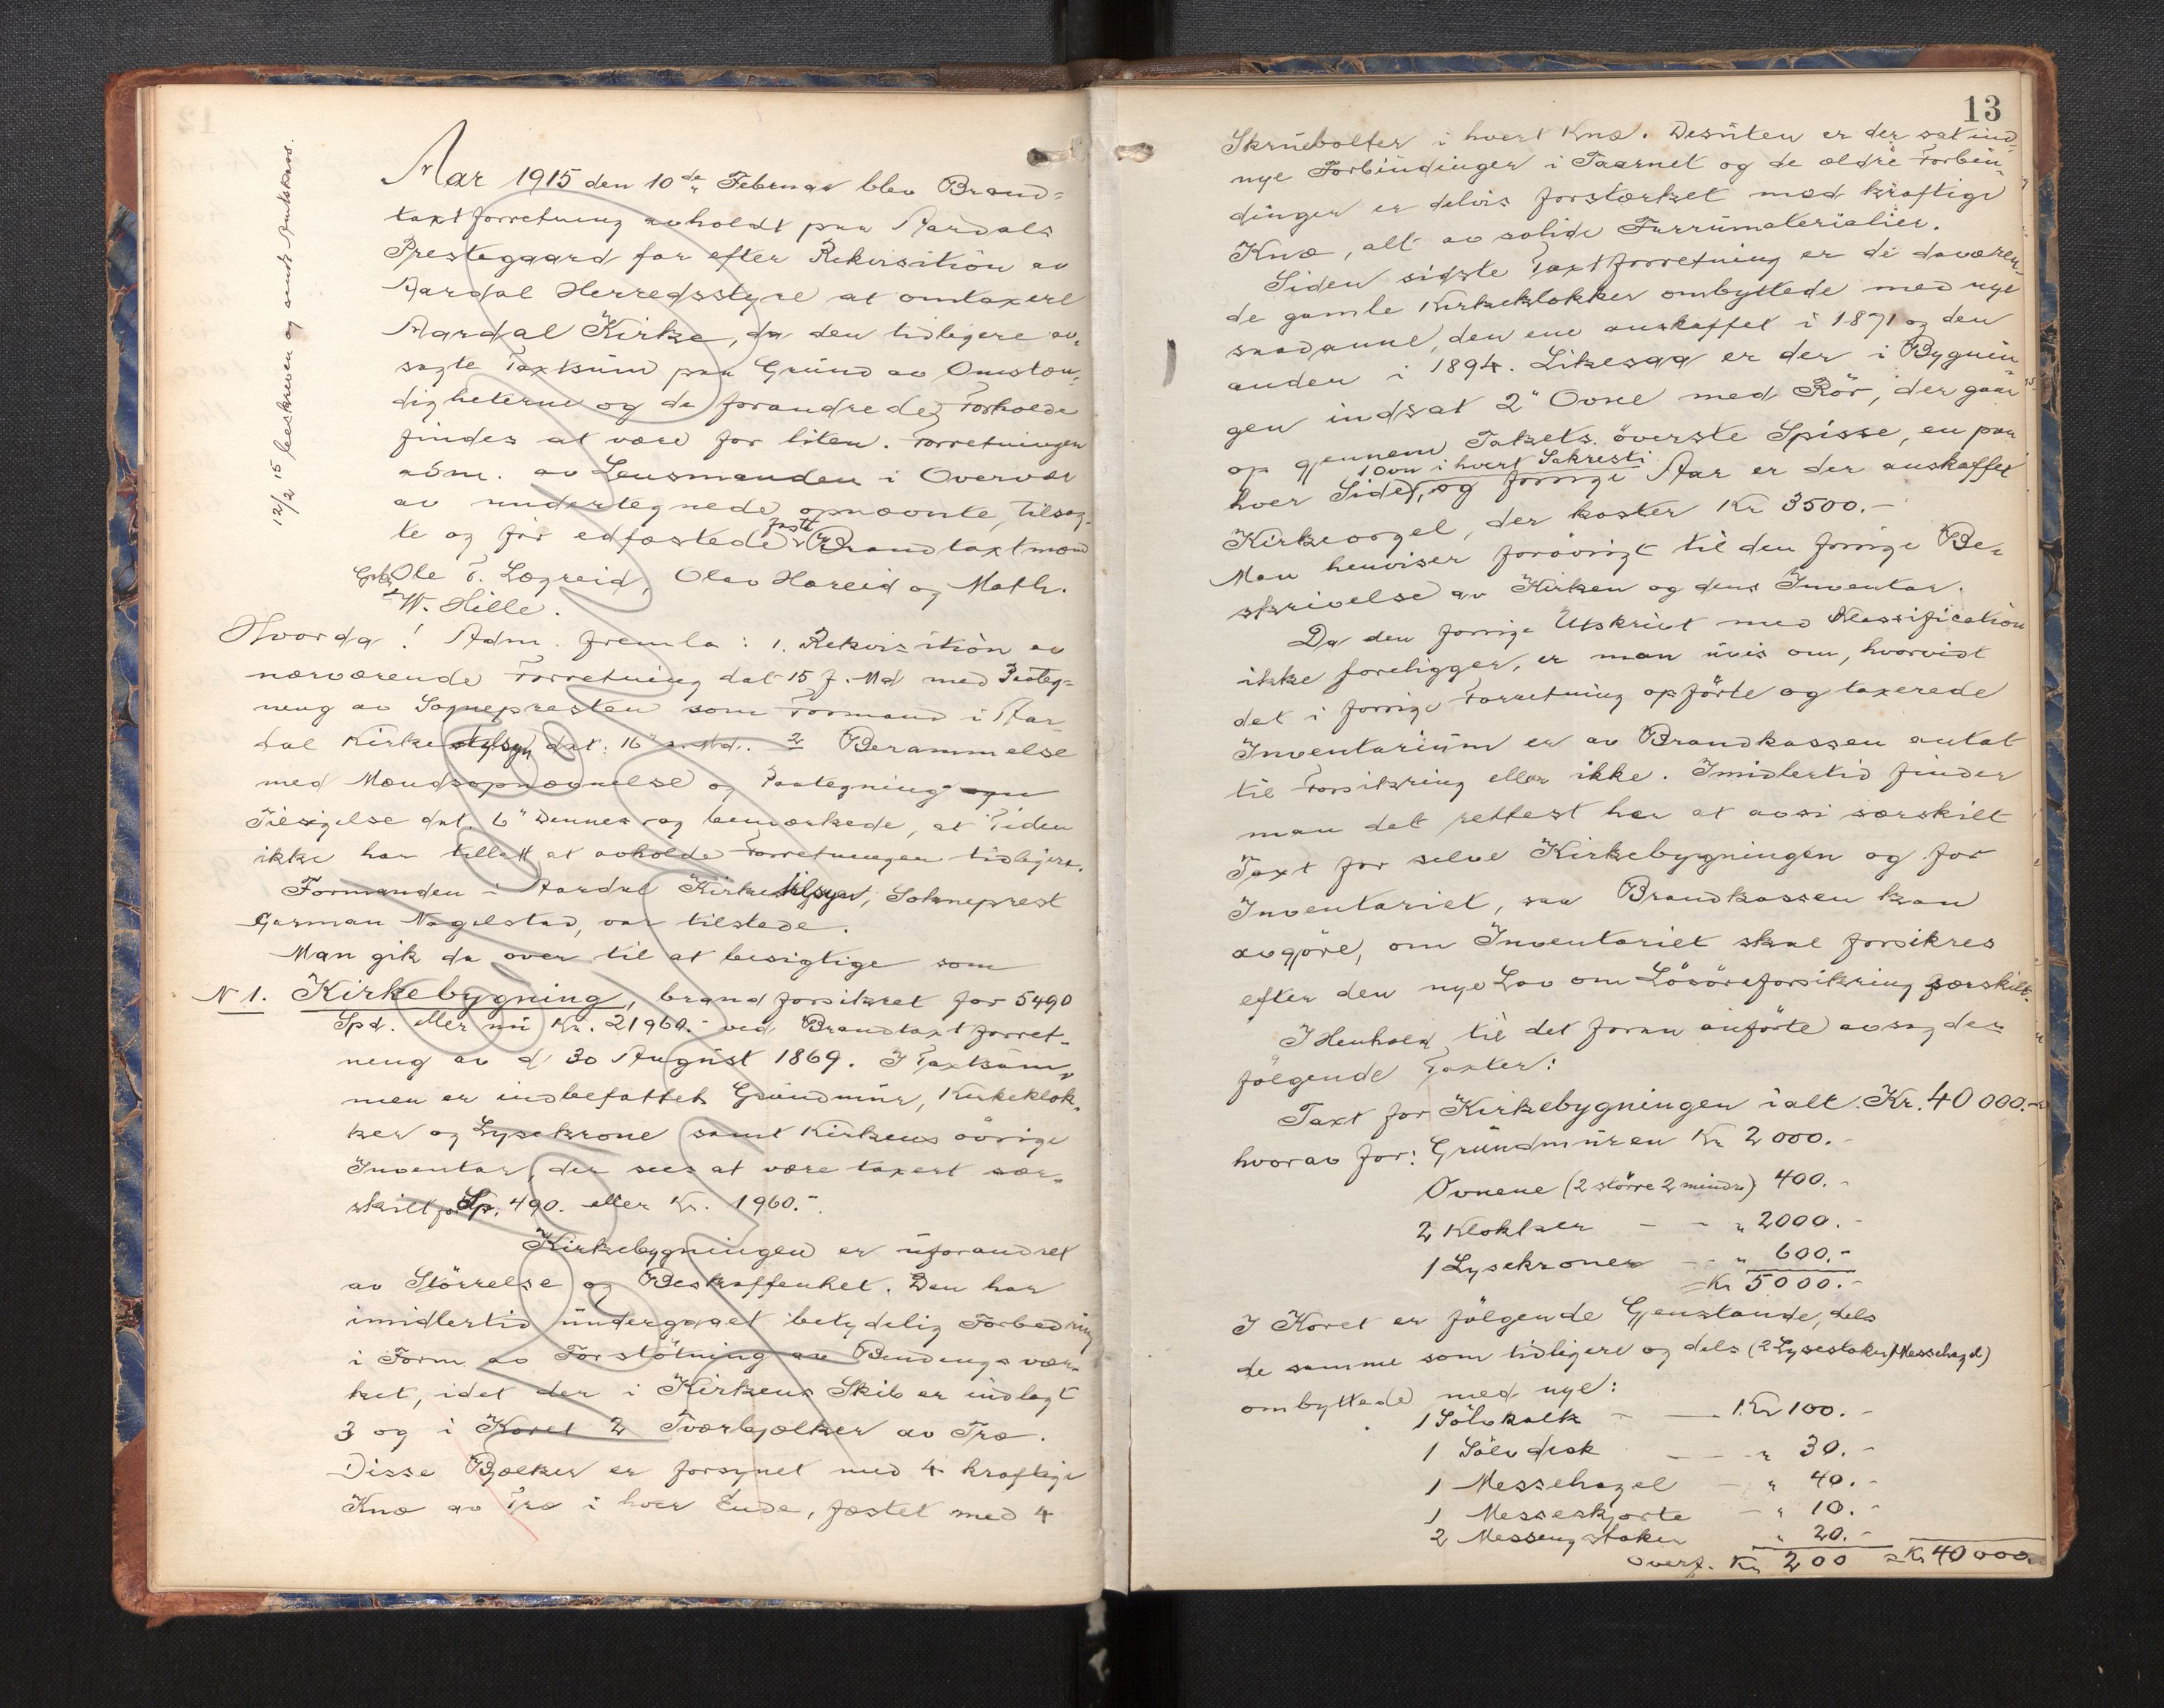 12/2 15 beskreven og sendt Amtskass.
Aar 1915 den 10de Februar blev Brand=
taxtforretning avholdt paa Aardals
Prestegaard for efter Rekvisition av
Aardal Herredsstyre at omtaxere
Aardal Kirke, da den tidligere av-
sagte Taxtsum paa Grund av Omstæn-
digheterne og de forandrede Forholde
findes at være for liten. Forretningen
adm. av Lensmanden i Overvær
av undertegnede opnævnte, tilsag-
te og før edfæstede faste Brandtaxtmænd
Gbr. Ole T. Lægreid, Olav Hareid og Math.
W. Hille.
Hvorda! Adm. fremla: 1. Rekvisition av
nærværende Forretning dat 15 f. Md med Paateg-
neng av Sognepresten som Formand i Aar
dal Kirketilsyn dat: 16 s. Md. 2 Berammelse
med Mændsopnævnelse og Paategning
Tilsigelse dat. 6" Dennes og bemærkede, at Tiden
ikke har tillatt at avholde Forretningen tidligere.
Formanden i Aardal Kirketilsyn, Sokneprest
Garman Nagelstad, var tilstede.
Man gik da over til at besigtige som
N 1. Kirkebygning, brandforsikret for 5490
Spd. eller nu Kr. 21960.- ved Brandtaxtforret-
neng av d 30 August 1869. I Taxtsum-
men er indbefattet Grundmur, Kirkeklok-
ker og Lysekrone samt Kirkens övrige
Inventar, der sees at være taxert sær-
skilt for Sp. 490. eller Kr. 1960.-
Kirkebygningen er uforandret
av Störrelse og Beskaffenhet. Den har
imidlertid undergaaet betydelig Forbedring
i Form av Forstötning av Bendingsvær-
ket, idet der i Kirkens Skib er indlagt
3 og i Koret 2 Tværbjælker av Træ.
Disse Bjælker er forsynet med 4 kraftige
Knæ av Træ i hver Ende, fæstet med 4
13
Skruebolter i hvert Knæ. Desuten er der sat ind
nye Forbindinger i Taarnet og de ældre Forbin-
dinger er delvis forstærket med kraftige
Knæ, alt av solide Furrumaterialier.
Siden sidste Taxtforretning er de daværen-
de gamle Kirkeklokker ombyttede med nye
saadanne, den ene anskaffet i 1871 og den
anden i 1894. Likesaa er der i Bygnin-
gen indsat 2" Ovne med Rör, der gaar
op gjennem Takets överste Spisse, en paa
1 Ovn i hvert Sakresti
hver Side, og forrige Aar er der anskaffet
Kirkeorgel, der koster Kr 3500.-
Man henviser forövrigt til den forrige Be-
skrivelse av Kirken og dens Inventar.
Da den forrige Utskrivt med Klassification
ikke foreligger, er man uvis om, hvorvidt
det i forrige Forretning opförte og taxerede
Inventarium er av Brandkassen antat
til Forsikring eller ikke. Imidlertid finder
man det rettest her at avsi særskilt
Taxt for selve Kirkebygningen og for
Inventariet, saa Brandkassen kan
avgjöre, om Inventariet skal forsikres
efter den nye Lov om Lösöreforsikring særskilt.
I Henhold til det foran anförte avsagdes
fölgende Taxter:
Taxt for Kirkebygningen ialt Kr. 40 000.-
hvorav for: Grundmuren Kr 2 000.-
Ovnene (2 större 2 mindre) 400.-
2 Klokker - - " 2000.-
1 Lysekroner - " 600.-
=Kr 5000.-
I Koret er fölgende Gjenstande, dels
de samme som tidligere og dels (2 Lysestaker, 1 Messehagel)
ombyttede med nye:
1 Sölvkalk - — Kr 100.-
1 Sölvdisk — - " 30.-
1 Messehagel - " 40.-
1 Messeskjorte - " 10.-
2 Messengstaker " 20.-
Overf. Kr 200 = Kr 40000.